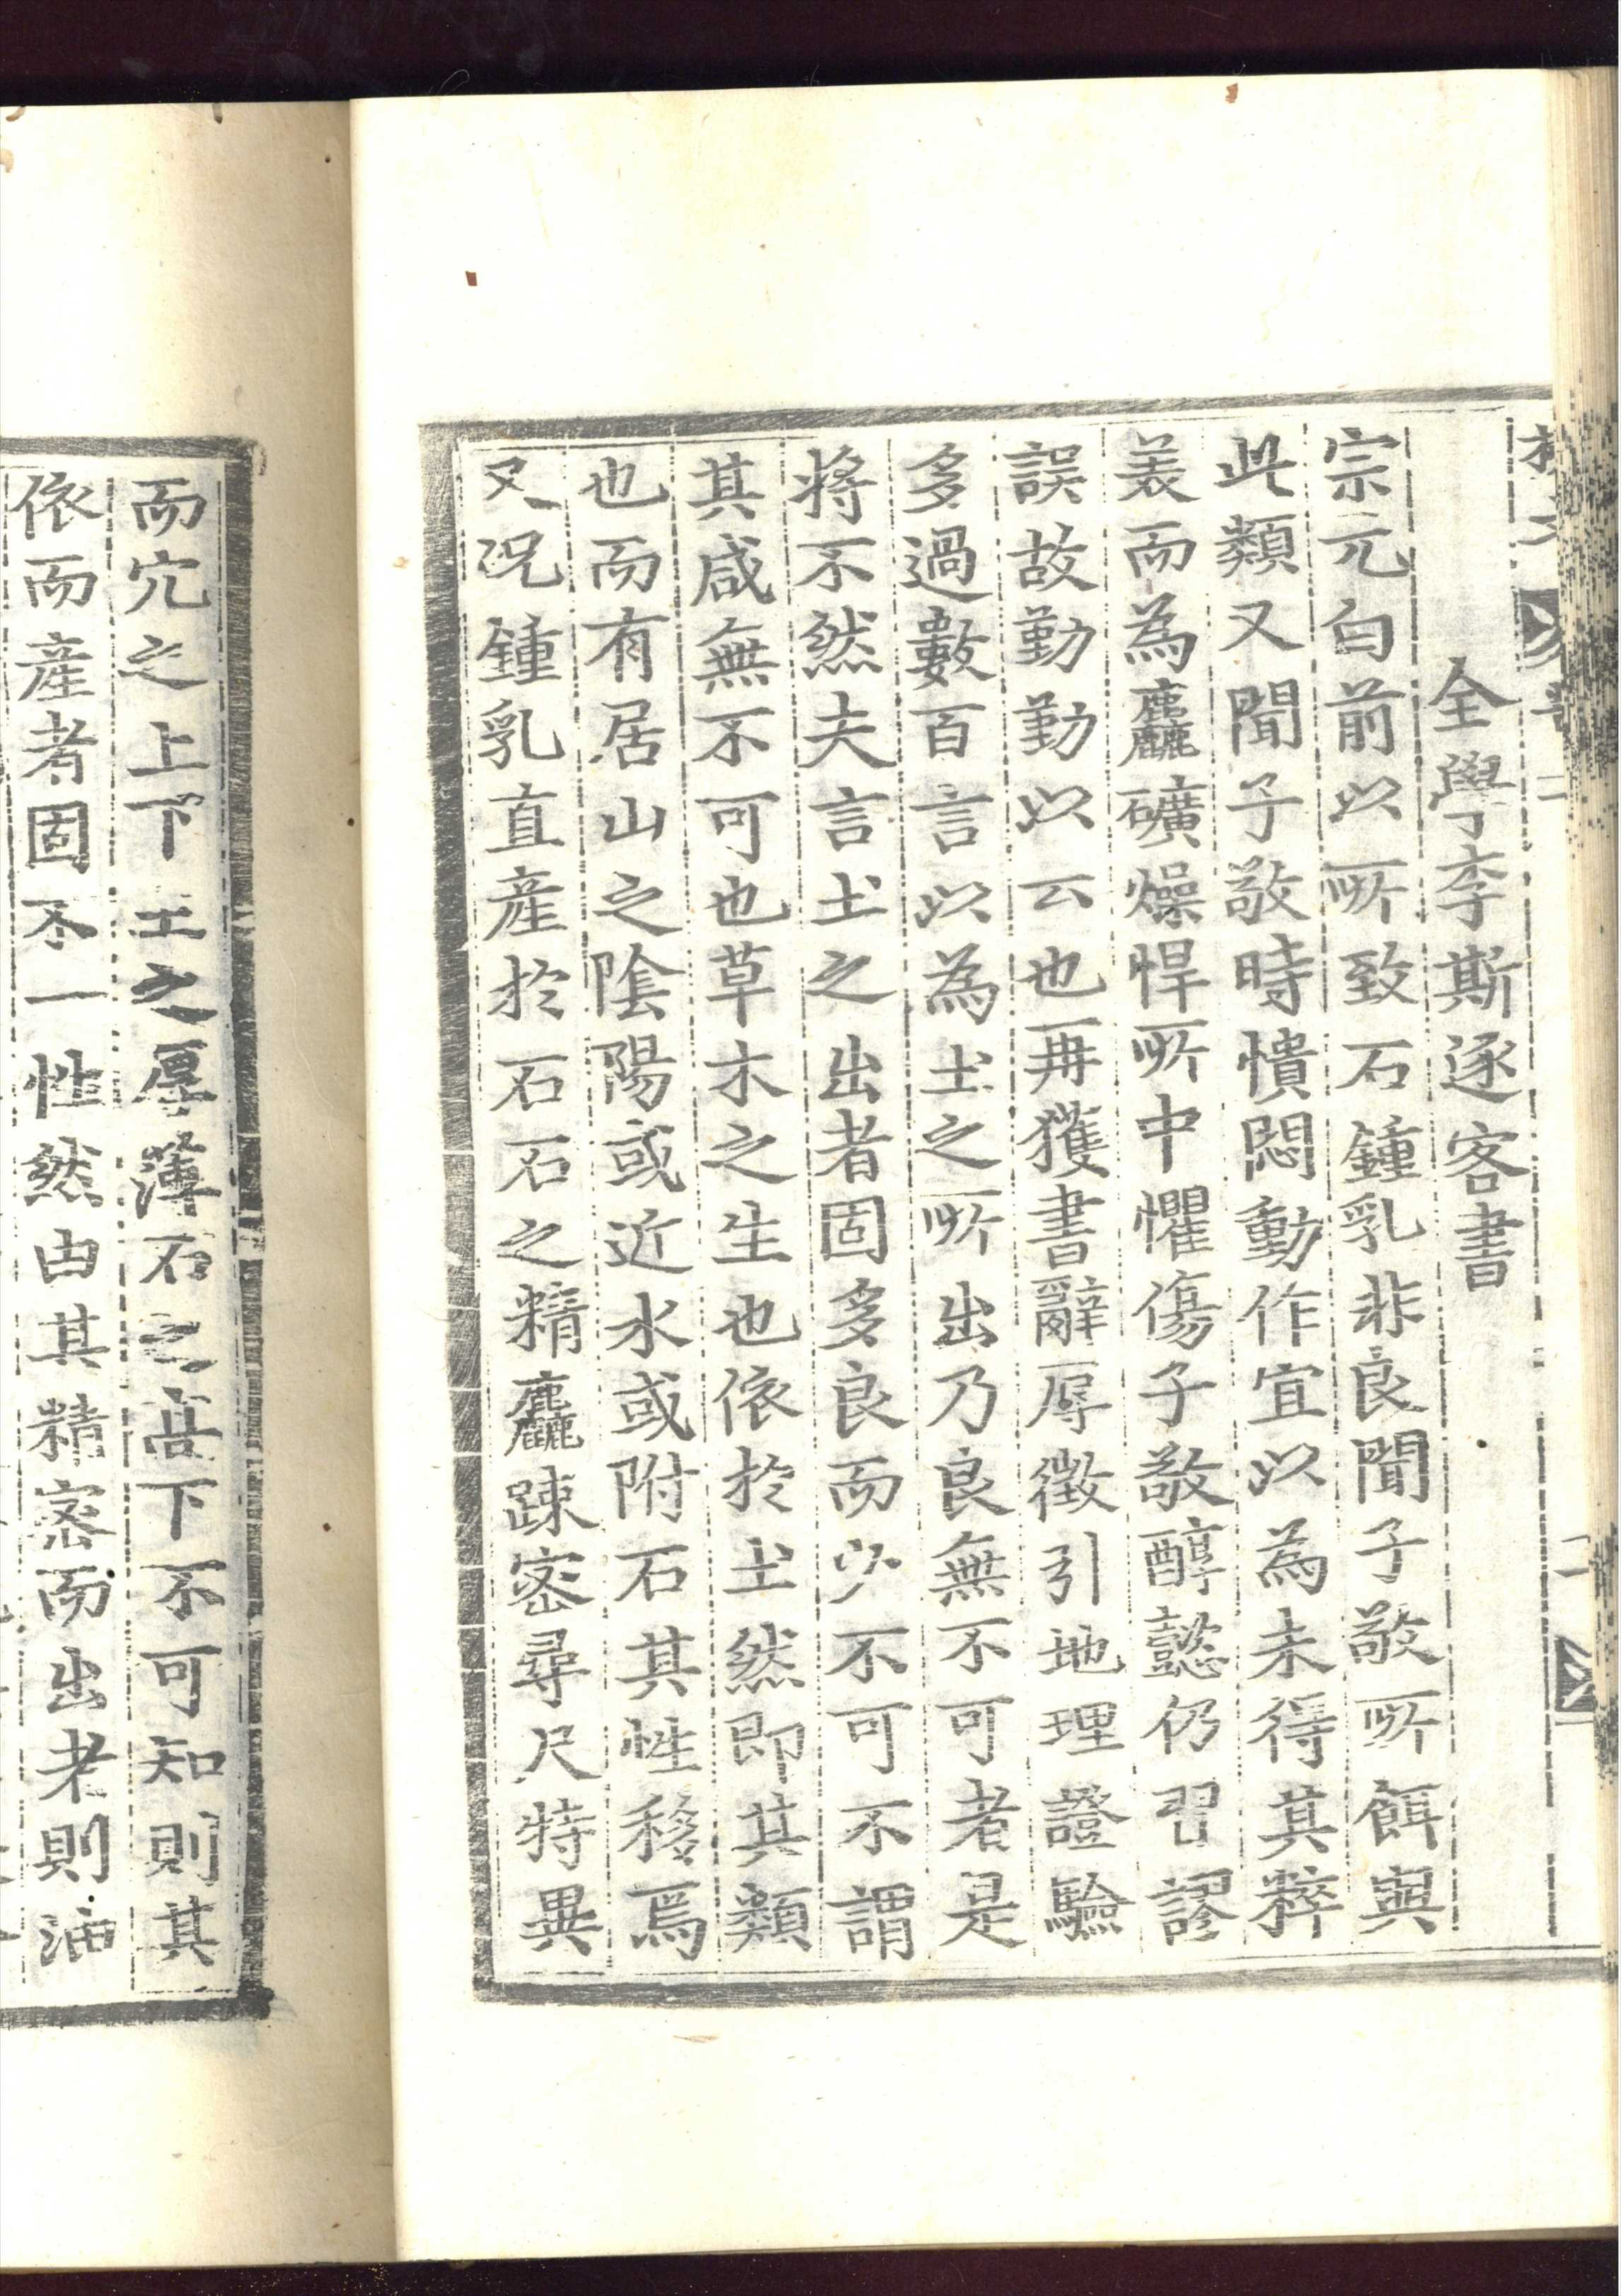 全學李斯逐客書
宗元白前以所致石鍾乳非良聞子敬所餌與
此類又聞子敬時憒悶動作宜以為未得其粹
美而為麤礦燥悍所中懼傷子敬醇懿仍習謬
誤故勤勤以云也再獲書辭辱徵引地理證驗
多過數百言以為土之所出乃良無不可者是
將不然夫言土之出者固多良而少不可不謂
其咸無不可也草木之生也依於土然即其類
也而有居山之陰陽或近水或附石其性移焉
又況鍾乳直產於石石之精麤踈密尋尺特異
而穴之上下土之厚薄石之高下不可知則其
依而產者固不一性然由其精密而出者則油